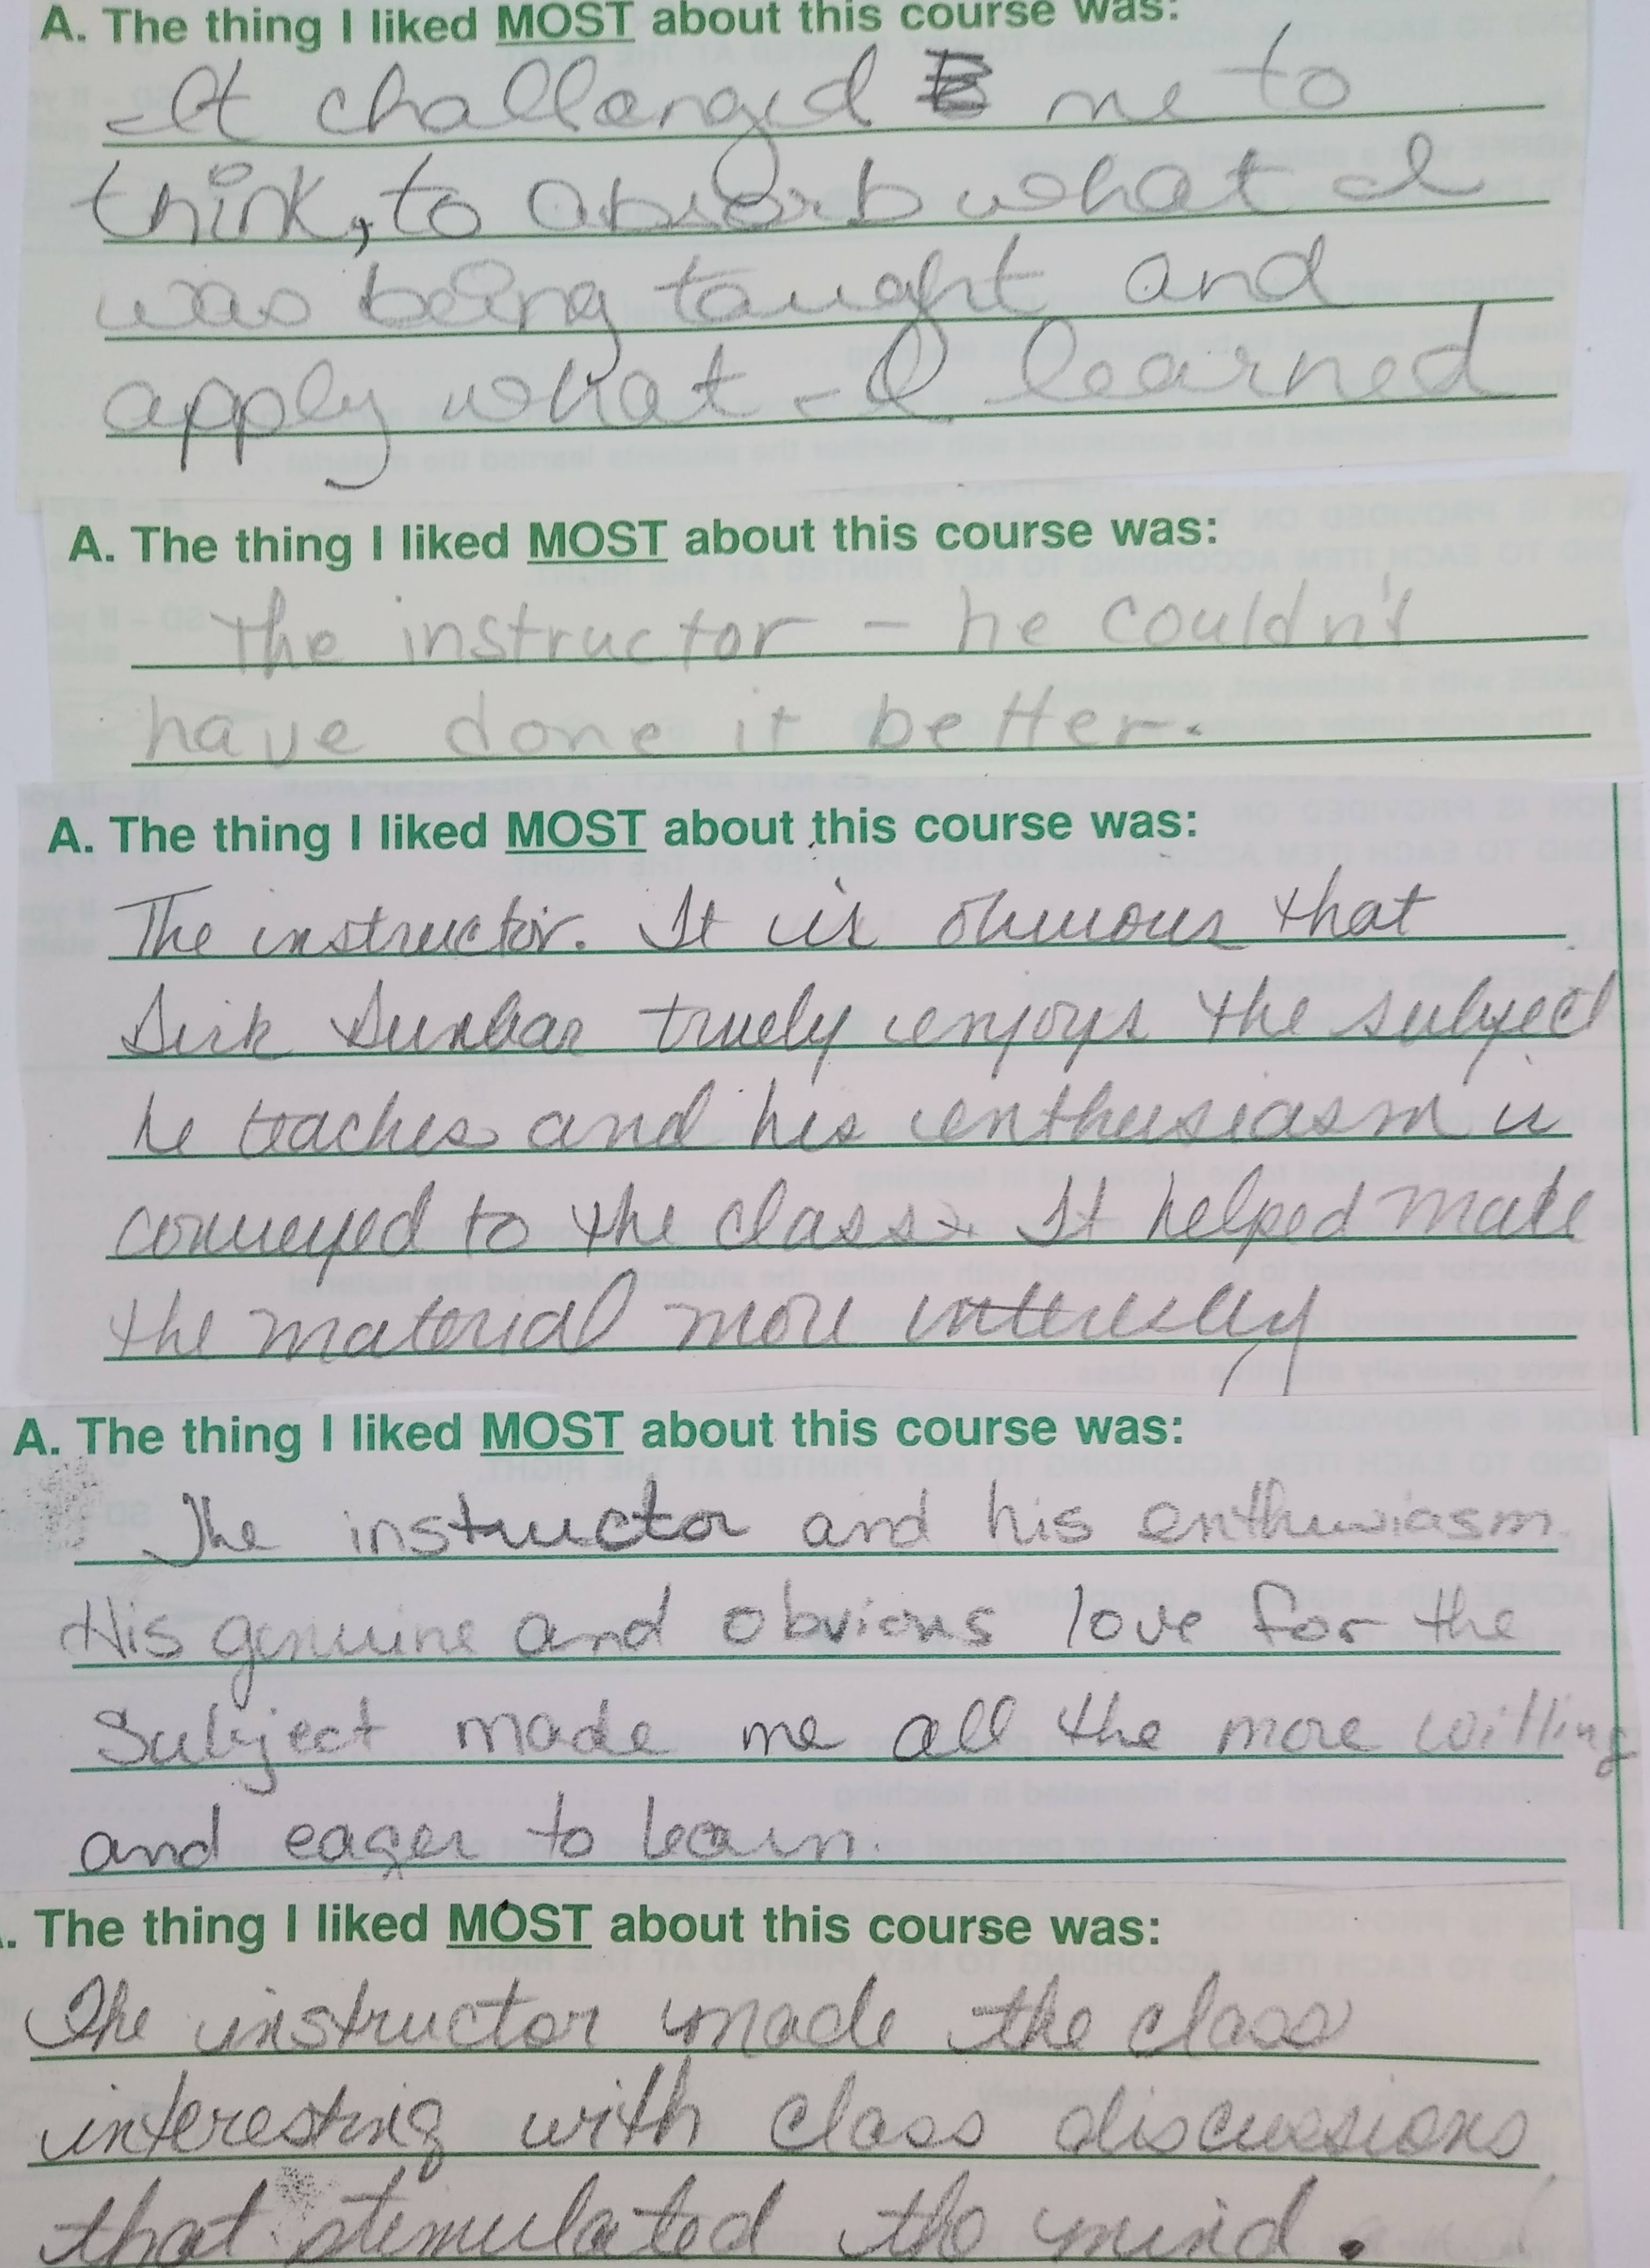 A. The thing I liked MOST about this course was:
It challenged me to
think, to absorb what I
was being taught and
apply what I learned
A. The thing I liked MOST about this course was:
The instructor - he couldn't
have done it better.
A. The thing I liked MOST about this course was:
The instructor. It is obvious that
Dirk Dunbar truely enjoys the subject
he teaches and his enthusiasm is
conveyed to the class. It helped make
the material more
A. The thing I liked MOST about this course was:
The instructor and his enthusiasm.
His genuine and obvious love for the
Subject made me all the more willing
and eager to learn.
. The thing I liked MOST about this course was:
The instructor made the class
interesting with class discussions
that stimulated the mind.